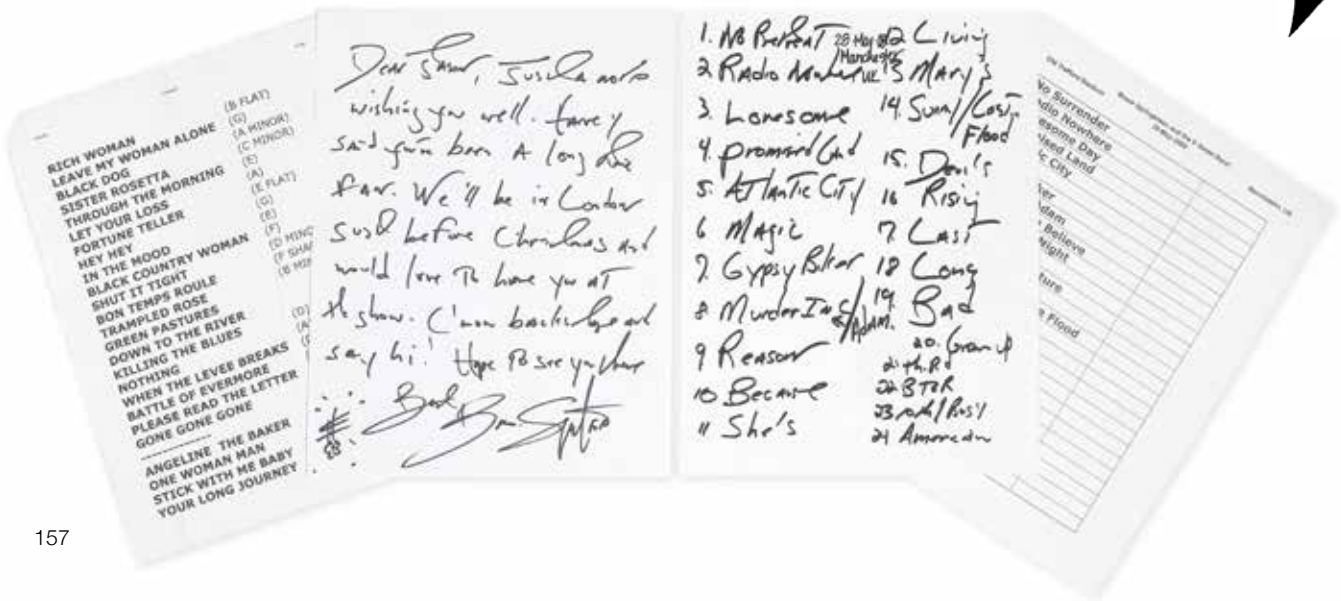 RICH WOMAN (B FLAT)
LEAVE MY WOMAN ALONE (G)
BLACK DOG (A MINOR)
SISTER ROSETTA (C MINOR)
THROUGH THE MORNING (E)
LET YOUR LOSS (A)
FORTUNE TELLER (E FLAT)
HEY HEY (G)
IN THE MOOD (E)
BLACK COUNTRY WOMAN (F)
SHUT IT TIGHT (D MINO
BON TEMPS ROULE (F SHAR
TRAMPLED ROSE (B MIN
GREEN PASTURES
DOWN TO THE RIVER
KILLING THE BLUES (D)
NOTHING (A
WHEN THE LEVEE BREAKS
BATTLE OF EVERMORE
PLEASE READ THE LETTER
GONE GONE GONE
----------
ANGELINE THE BAKER
ONE WOMAN MAN
STICK WITH ME BABY
YOUR LONG JOURNEY
Dear Just a note
wishing you well.
said you've been a long time
fan. We'll be in London
just before Christmas and
would love to have you at
the show. C'mon backstage and
say hi! Hope to see you there
Best
1. No Retreat
28 May
Manchester
2 Radio
3. Lonesome
4. Promised Land
5. Atlantic City
6 Magic
7. Gypsy Biker
8. Murder Inc / Adam.
9 Reason
10 Because
11 She's
12 Living
13 Mary's
14. Sunny / Lost
Flood
15. Devil's
16 Rising
17 Last
18 Long
19. Bad
20. Grown up
21 th. Rd
22 BTR
23 10th / Ros'y
24 American
No Surrender
dio Nowhere
esome Day
ised Land
ic City
dam
Believe
Night
ture
e Flood
157